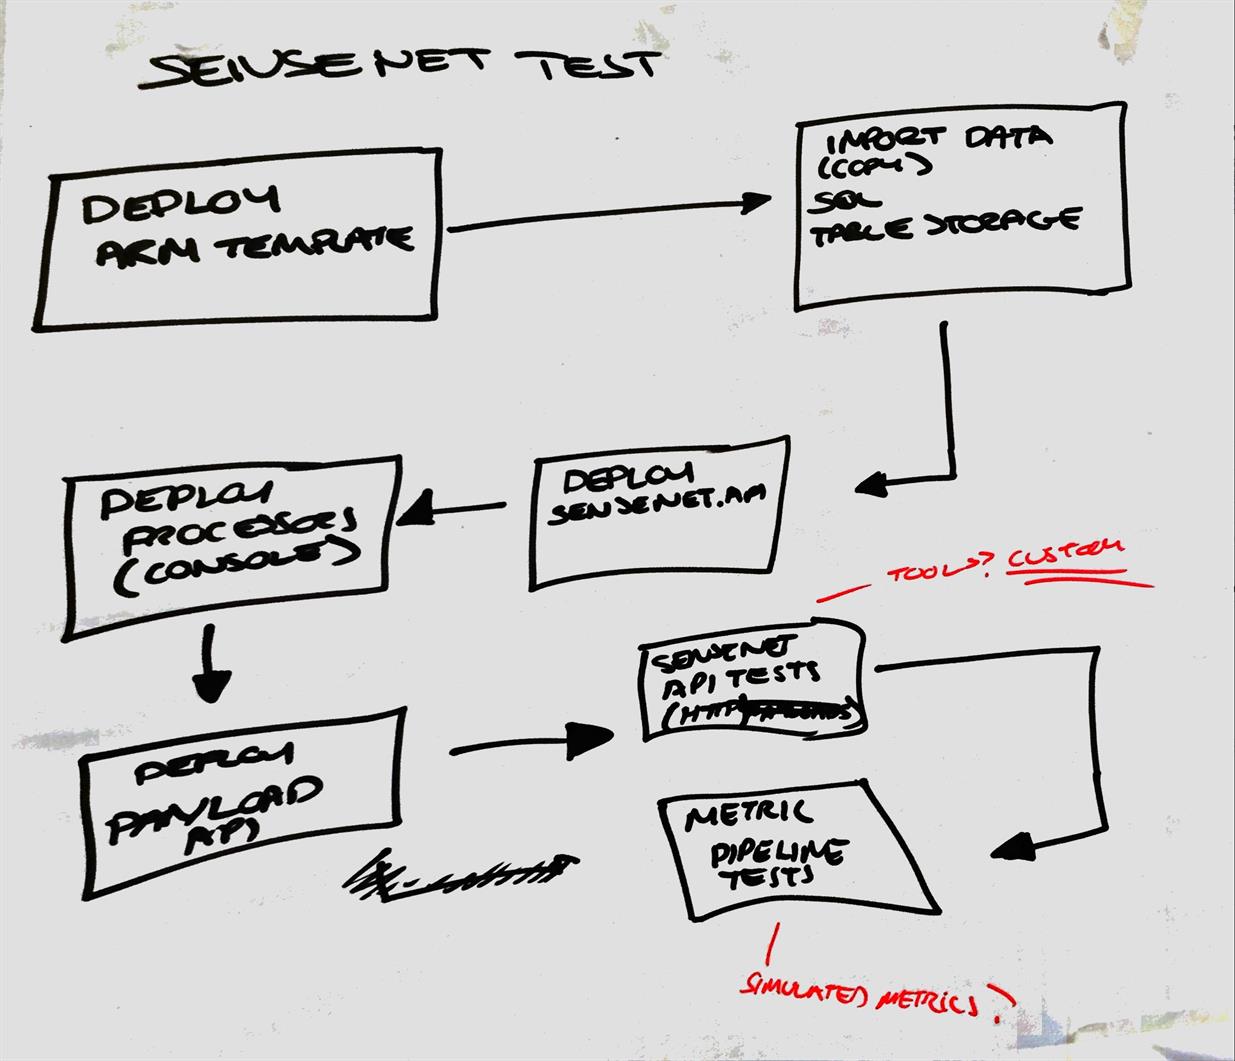 SENSENET TEST
DEPLOY
ARM TEMPLATE
IMPORT DATA
(COPY)
SQL
TABLE STORAGE
DEPLOY
SENSENET.API
DEPLOY
PROCESSORS
(CONSOLE)
DEPLOY
PAYLOAD
API
TOOLS? CUSTOM
SENSENET
API TESTS
(HTTP
METRIC
PIPELINE
TESTS
SIMULATED METRICS?